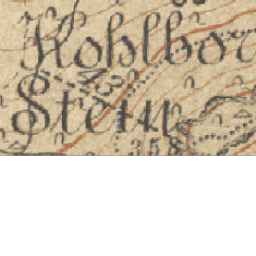 Kohlbor
Stein
358